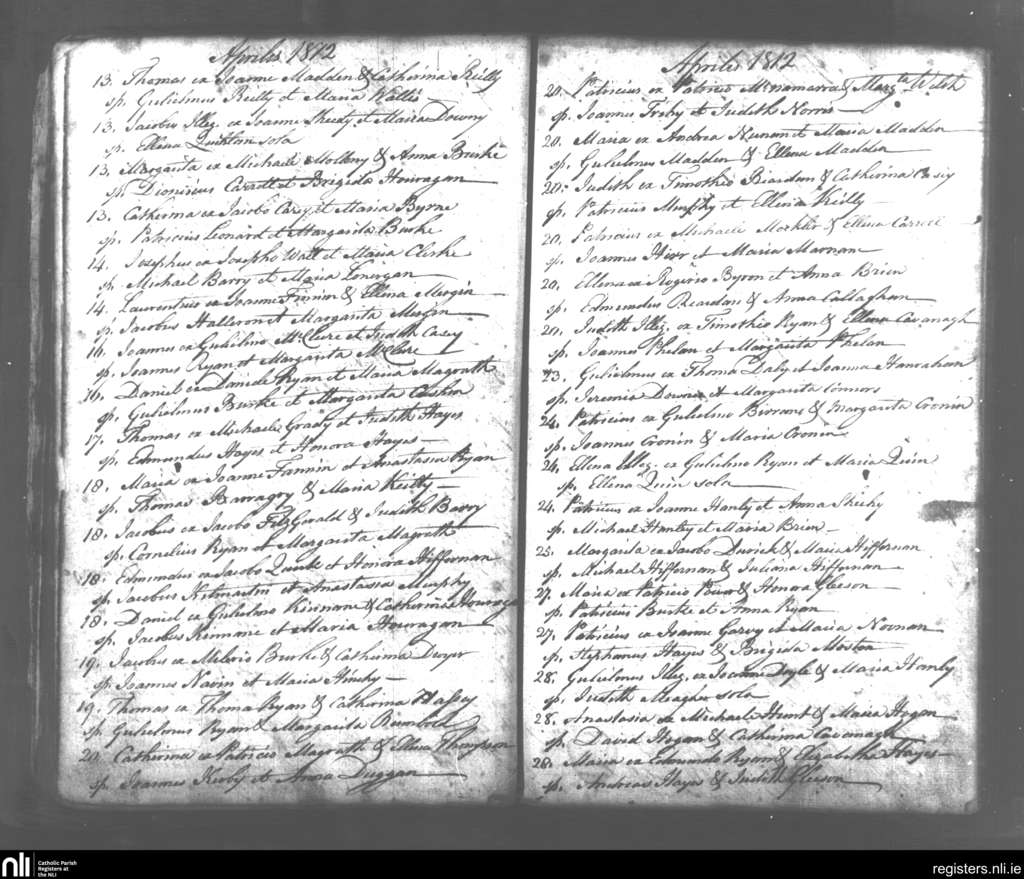 Aprilis 1812
13. Thomas ex Joanne Madden & Catherina Reilly
sp. Gulielmus Reilly et Maria Wallis
13. Jacobus Illeg. ex Joanne Sheedy et Maria Downy
sp. Ellena Quinlan sola
13. Margarita ex Michaele Molony & Anna Burke
sp. Dionisius et Brigida Houragan
13. Catherina ex Jacobo Carey et Maria Byrne
sp. Patricius Leonard et Margarita Burke
14. Josephus ex Josepho Wall et Maria Clerke
sp. Michael Barry et Maria Lonergan
14. Laurentius ex Joanne & Ellena Mergin
sp. Jacobus Halloron et Margarita Mergin
16. Joannes ex Gulielmo McClure et Judith Casey
sp. Joannes Ryan et Margarita McClure
16. Daniel ex Daniele Ryan et Maria Magrath
sp. Gulielmus Burke et Margarita Cashen
17. Thomas ex Michaele Grady et Judith Hayes
sp. Edmundus Hayes et Honora Hayes
18. Maria ex Joanne Fannin et Anastasia Ryan
sp. Thomas Barragry & Maria Reilly
18. Jacobus ex Jacobo FitzGerald & Judith Barry
sp. Cornelius Ryan et Margarita Magrath
18. Edmundus ex Jacobo Quirke et Honora Hiffernan
sp. Jacobus Kilmartin et Anastasia Murphy
18. Daniel ex Gulielmo Kinnane & Catherina Houragan
sp. Jacobus Kinnane et Maria Houragan
19. Jacobus ex Milerio Burke & Catherina Dwyer
sp. Joannes Navin et Maria
19. Thomas ex Thoma Ryan & Catherina Hassey
sp. Gulielmus Ryan & Margarita Rumbold
20. Catherina ex Patricio Magrath & Ellena Thompson
sp. Joannes Kirby et Anna Duggan
Aprilis 1812
20. Patricius ex Patricio McNamarra & Margta Welsh
sp. Joannes et Judith Norris
20. Maria ex Andrea Nunan et Maria Madden
sp. Gulielmus Madden & Ellena Madden
20. Judith ex Timothio Riardan & Catherina Casey
sp. Patricius Murphy et Ellena Reilly
20. Patricius ex Michaele & Ellena
sp. Joannes et Maria Marnane
20. Ellena ex Rogerio Byron et Anna Brien
sp. Edmundus Reardan & Anna Callaghan
20. Judith Illeg. ex Timothio Ryan & Ellena Cavanagh
sp. Joannes Phelan et Margarita Phelan
23. Gulielmus ex Thoma Daly et Joanna Hanrahan
sp. Jeremia et Margarita Connors
24. Patricius ex Gulielmo & Margarita Cronin
sp. Joannes Cronin & Maria Cronin
24. Ellena Illeg. ex Gulielmo Ryan et Maria Quin
sp. Ellena Quin sola
24. Patricius ex Joanne Hanly et Anna Sheehy
sp. Michael Hanly et Maria Brien
25. Margarita ex Jacobo Durick & Maria Hiffernan
sp. Michael Hiffernan & Juliana Hiffernan
27. Maria ex Patricio Power & Honora Gleeson
sp. Patricius Burke et Anna Ryan
27. Patricius ex Joanne Garvy et Maria Noonan
sp. Stephanus Hayes & Brigida
28. Gulielmus Illeg. ex Joanne Doyle & Maria Hanly
sp. Judith Meagher sola
28. Anastasia ex Michaele Hunt & Maria Hogan
sp. David Hogan & Catherina Cavanagh
28. Maria ex Edmundo Ryan & Elizabetha Hayes
sp. Andreas Hayes & Judith Gleeson
nli
Catholic Parish
Registers at
the NLI
registers.nli.ie